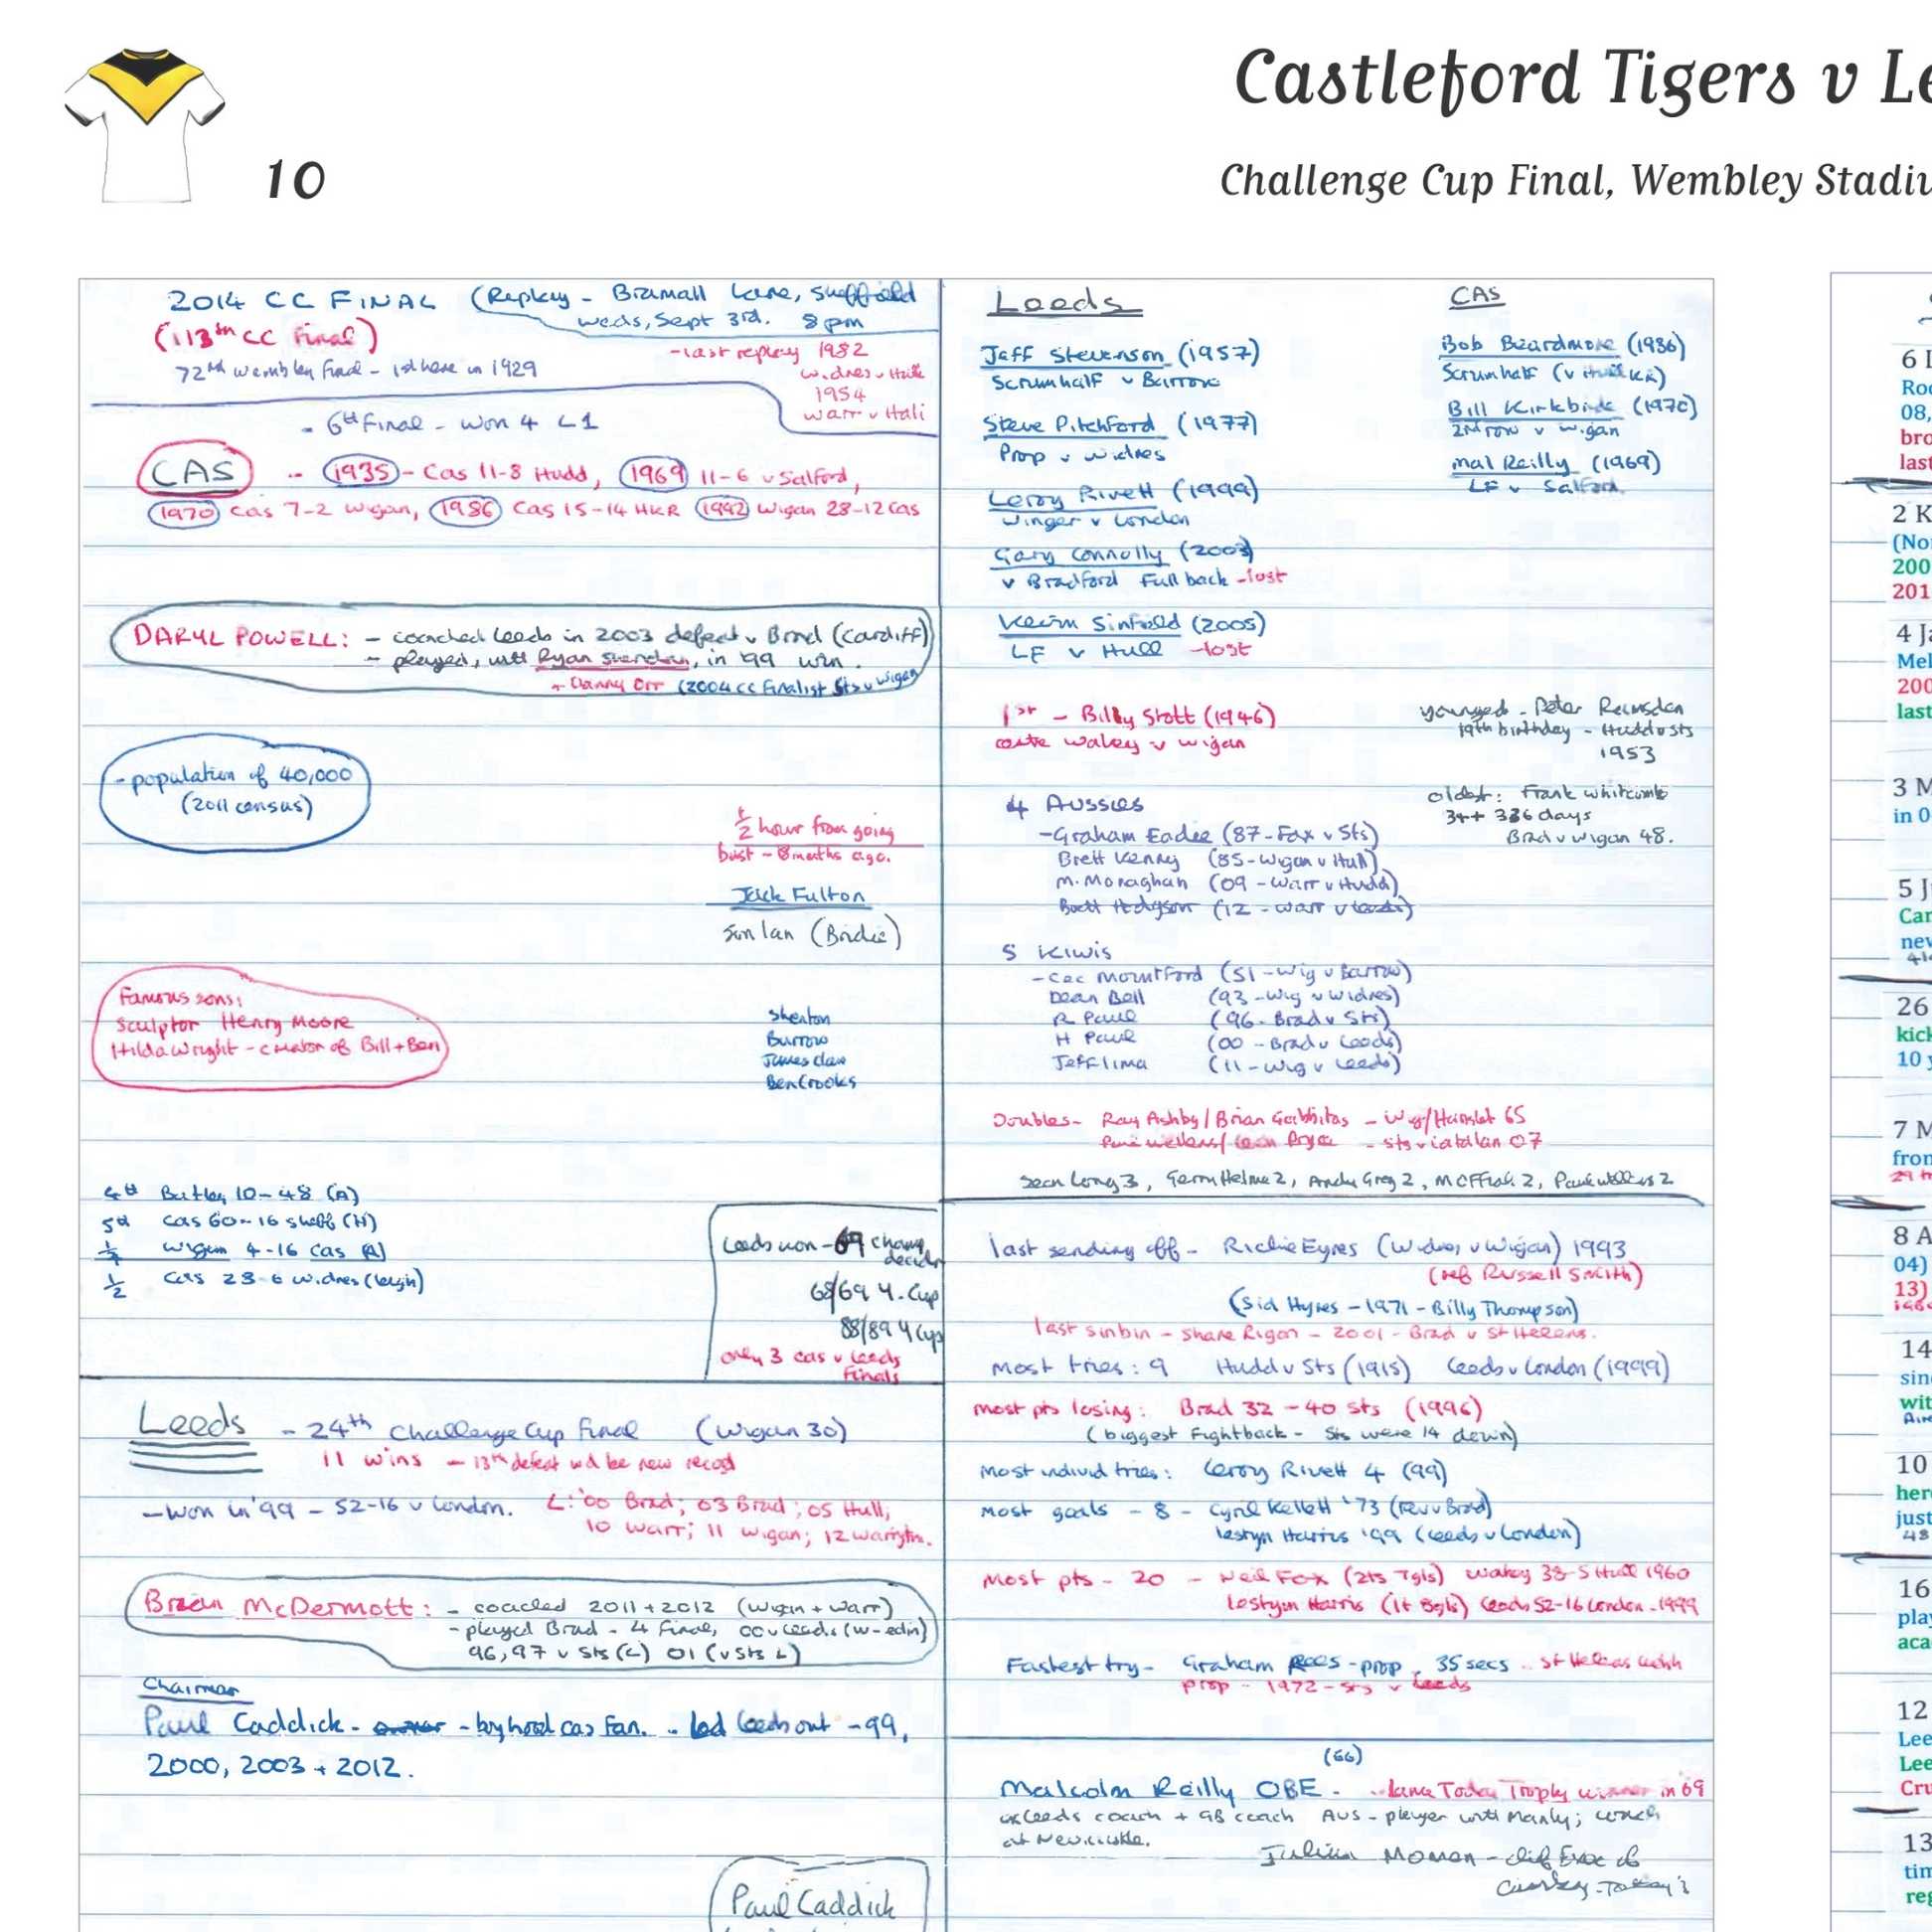 Castleford Tigers v Le
10
Challenge Cup Final, Wembley Stadiu
2014 CC FINAL (Replay - Bramall Lane, Sheffield
Weds, Sept 3rd. 8pm
(113th CC Final)
72nd Wembley Final - 1st here in 1929
- last replay 1982
Widnes v Hull
1954
Warr v Hali
- 6th Final - won 4 L1
CAS - 1935 - Cas 11-8 Hudd, 1969 11-6 v Salford,
1970 Cas 7-2 Wigan, 1986 Cas 15-14 HKR 1992 Wigan 28-12 Cas
DARYL POWELL: - coached Leeds in 2003 defeat v Brad (Cardiff)
- played, with Ryan Sheridan, in '99 win.
+ Danny Orr (2004 CC Finalist Sts v Wigan
- population of 40,000
(2011 census)
1/2 hour from going
bust - 8 months ago.
Jack Fulton
Son Ian (Birdie)
Famous sons:
Sculptor Henry Moore
Hilda Wright - creator of Bill + Ben
Shenton
Burrow
James Clare
Ben Crooks
4th Batley 10-48 (A)
5th Cas 60-16 Sheff (H)
1/4 Wigan 4-16 Cas (A)
1/2 Cas 28-6 Widnes (Leigh)
Leeds won - 69 champ
decider
68/69 Y. Cup
88/89 Y Cup
only 3 Cas v Leeds
Finals
Leeds - 24th Challenge Cup Final (Wigan 30)
11 wins - 13th defeat wd be new record
- Won in '99 - 52-16 v London. L: '00 Brad; 03 Brad; 05 Hull;
10 Warr; 11 Wigan; 12 Warrington.
Brian McDermott: - coached 2011 + 2012 (Wigan + Warr)
- played Brad - 4 Final, 00 v Leeds (W - edin)
96, 97 v Sts (L) 01 (v Sts L)
Chairman
Paul Caddick - owner - boyhood Cas Fan. - Led Leeds out - 99,
2000, 2003 + 2012.
Paul Caddick
Leeds
Jeff Stevenson (1957)
Scrumhalf v Barrow
Steve Pitchford (1977)
Prop v Widnes
Leroy Rivett (1999)
Winger v London
Gary Connolly (2003)
v Bradford Full back - lost
Kevin Sinfield (2005)
LF v Hull - lost
CAS
Bob Beardmore (1986)
Scrumhalf (v Hull KR)
Bill Kirkbride (1970)
2nd row v Wigan
Mal Reilly (1969)
LF v Salford.
1st - Billy Stott (1946)
centre Wakey v Wigan
youngest - Peter Ramsden
19th birthday - Hudd v Sts
1953
oldest: Frank Whitcombe
34 + 336 days
Brad v Wigan 48.
4 Aussies
- Graham Eadie (87 - Fax v Sts)
Brett Kenny (85 - Wigan v Hull)
M. Monaghan (09 - Warr v Hudd)
Brett Hodgson (12 - Warr v Leeds)
5 Kiwis
- Cec Mountford (51 - Wig v Barrow)
Dean Bell (93 - Wig v Widnes)
R Paul (96 - Brad v Sts)
H Paul (00 - Brad v Leeds)
Jeff Lima (11 - Wig v Leeds)
Doubles - Ray Ashby / Brian Gabbitas - Wig/Hunslet 65
Paul Wellens / Leon Pryce - Sts v Catalan 07
Sean Long 3, Gerry Helme 2, Andy Greg 2, M Offiah 2, Paul Wellens 2
last sending off - Richie Eyres (Widnes v Wigan) 1993
(ref Russell Smith)
(Sid Hynes - 1971 - Billy Thompson)
last sinbin - Shane Rigon - 2001 - Brad v St Helens.
Most tries: 9 Hudd v Sts (1915) Leeds v London (1999)
Most pts losing: Brad 32 - 40 Sts (1996)
(biggest Fightback - Sts were 14 down)
Most individ tries: Leroy Rivett 4 (99)
Most goals - 8 - Cyril Kellett '73 (Fev v Brad)
Iestyn Harris '99 (Leeds v London)
Most pts - 20 - Neil Fox (2ts 7gls) Wakey 38-5 Hull 1960
Iestyn Harris (1t 8gls) Leeds 52-16 London - 1999
Fastest try - Graham Rees - prop, 35 secs - St Helens
prop - 1972 - Sts v Leeds
(66)
Malcolm Reilly OBE - Lance Todd Trophy winner in 69
ex Leeds coach + GB coach Aus - player with Manly; coach
at Newcastle.
6 I
Roc
08,
bro
last
2 K
(Nor
200
201
4 Ja
Mel
200
last
3 M
in 0
5 J
Can
nev
26
kick
10 y
7 M
fron
8 A
04)
13)
14
sinc
wit
10
her
just
48
16
pla
aca
12
Lee
Lee
Cru
13
tim
reg